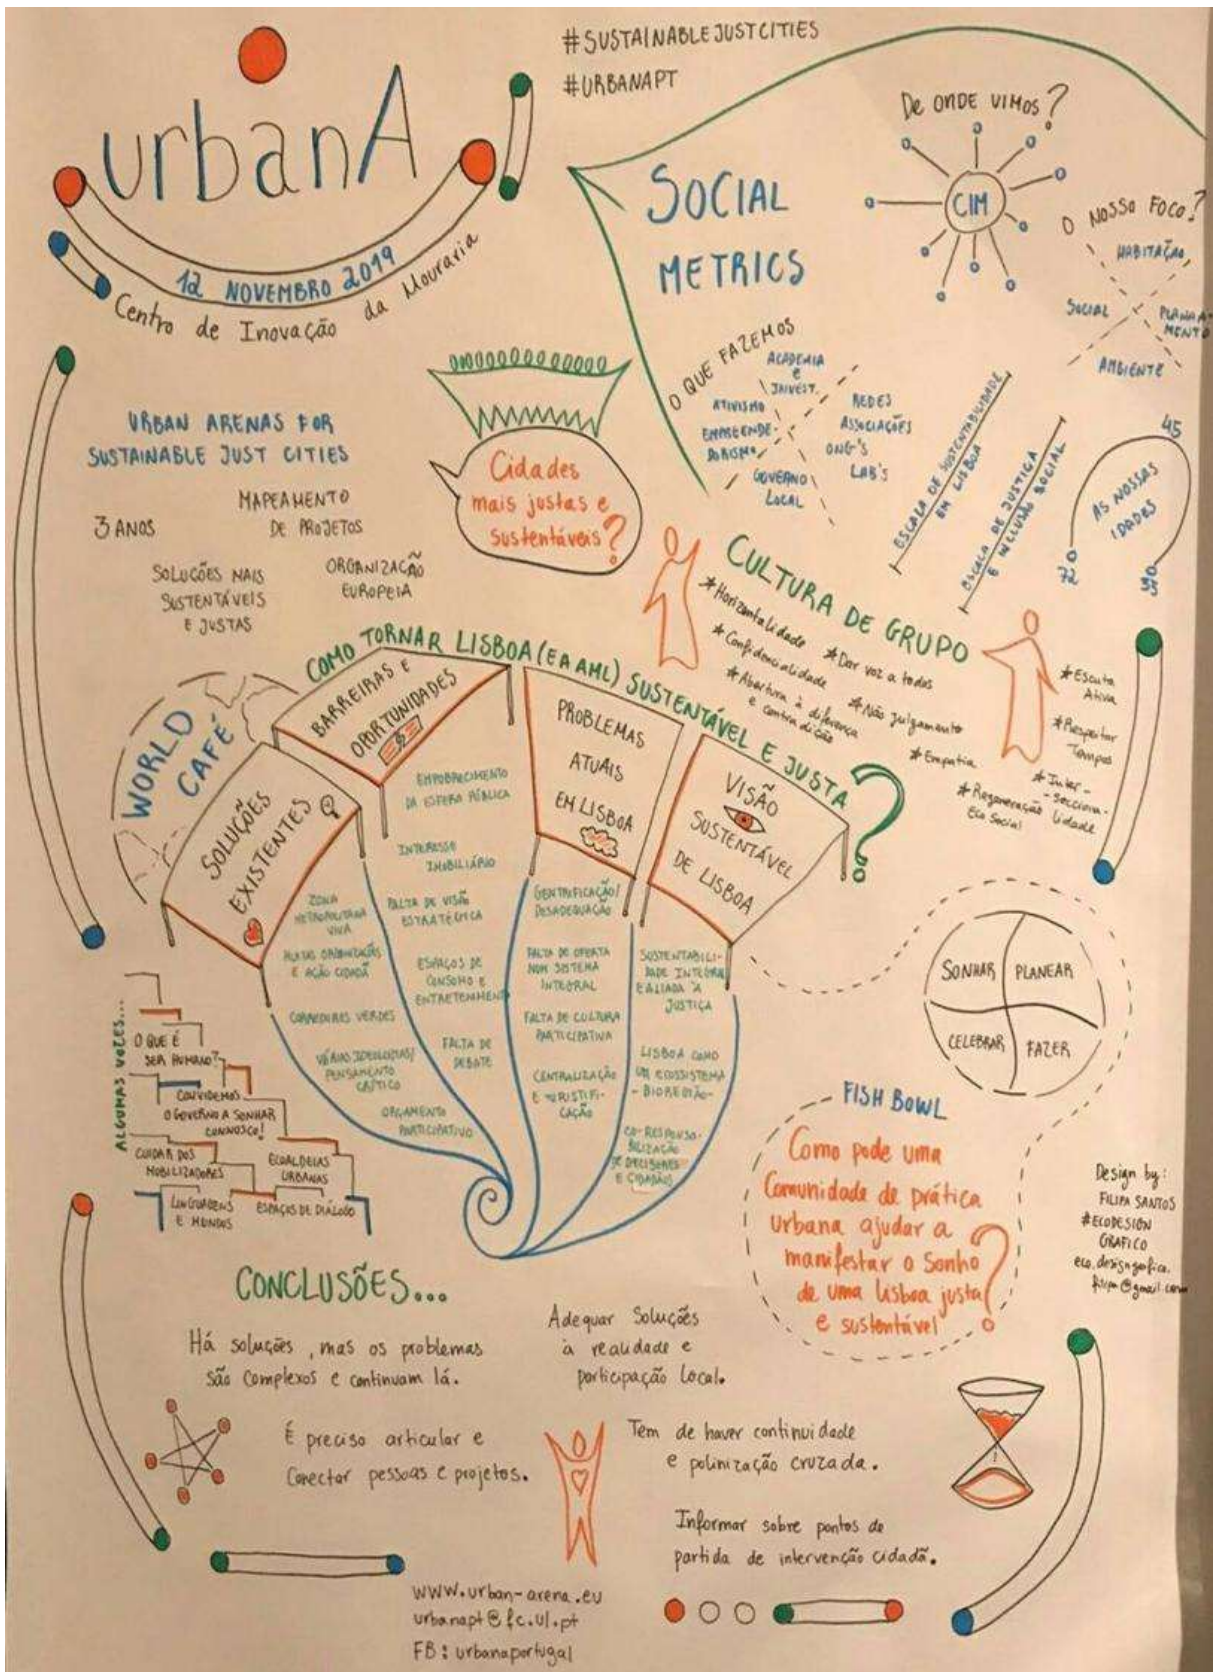 #SUSTAINABLEJUSTCITIES
#URBANAPT
urbanA
12 NOVEMBRO 2019
Centro de Inovação da Mouraria
URBAN ARENAS FOR
SUSTAINABLE JUST CITIES
3 ANOS
MAPEAMENTO
DE PROJETOS
SOLUÇÕES MAIS
SUSTENTÁVEIS
E JUSTAS
ORGANIZAÇÃO
EUROPEIA
Cidades
mais justas e
sustentáveis?
SOCIAL
METRICS
De ONDE VIMOS?
CIM
O NOSSO FOCO?
HABITAÇÃO
SOCIAL
PLANEA-
MENTO
AMBIENTE
O QUE FAZEMOS
ACADEMIA
e
INVEST.
ATIVISMO
EMPREENDE-
DORISMO
REDES
ASSOCIAÇÕES
ONG'S
LAB'S
GOVERNO
LOCAL
ESCALA DE SUSTENTABILIDADE
EM LISBOA
ESCALA DE JUSTIÇA
E INCLUSÃO SOCIAL
AS NOSSAS
IDADES
45
72
CULTURA DE GRUPO
*Horizontalidade
*Confidencialidade
*Abertura à diferença
e contradição
*Dar voz a todos
*Não julgamento
*Empatia
*Regeneração
Eco Social
*Escuta
Ativa
*Respeitar
Tempos
*Inter-
-secciona-
lidade
WORLD
CAFÉ
COMO TORNAR LISBOA (E A AML) SUSTENTÁVEL E JUSTA?
SOLUÇÕES
EXISTENTES
ZONA
METROPOLITANA
VIVA
MUITAS ORGANIZAÇÕES
E AÇÃO CIDADÃ
CORREDORES VERDES
VÁRIAS IDEOLOGIAS/
PENSAMENTO
CRÍTICO
ORÇAMENTO
PARTICIPATIVO
BARREIRAS E
OPORTUNIDADES
EMPOBRECIMENTO
DA ESFERA PÚBLICA
INTERESSE
IMOBILIÁRIO
FALTA DE VISÃO
ESTRATÉGICA
ESPAÇOS DE
CONSUMO E
ENTRETENIMENTO
FALTA DE
DEBATE
PROBLEMAS
ATUAIS
EM LISBOA
GENTRIFICAÇÃO/
DESADEQUAÇÃO
FALTA DE OFERTA
NUM SISTEMA
INTEGRAL
FALTA DE CULTURA
PARTICIPATIVA
CENTRALIZAÇÃO
E TURISTIFI-
CAÇÃO
VISÃO
SUSTENTÁVEL
DE LISBOA
SUSTENTABILI-
DADE INTEGRAL
E ALIADA À
JUSTIÇA
LISBOA COMO
UM ECOSSISTEMA
- BIOREGIÃO-
CO-RESPONSA-
BILIZAÇÃO
DE DECISORES
E CIDADÃOS
ALGUMAS VOZES...
O QUE É
SER HUMANO?
CONVIDEMOS
O GOVERNO A SONHAR
CONNOSCO!
CUIDAR DOS
MOBILIZADORES
ECOALDEIAS
URBANAS
LINGUAGENS
E MUNDOS
ESPAÇOS DE DIÁLOGO
SONHAR
PLANEAR
CELEBRAR
FAZER
FISH BOWL
Como pode uma
Comunidade de prática
Urbana ajudar a
manifestar o Sonho
de uma Lisboa justa
e sustentável?
Design by:
FILIPA SANTOS
#ECODESIGN
GRAFICO
CONCLUSÕES...
Há soluções, mas os problemas
são complexos e continuam lá.
Adequar Soluções
à realidade e
participação Local.
É preciso articular e
Conectar pessoas e projetos.
Tem de haver continuidade
e polinização cruzada.
Informar sobre pontos de
partida de intervenção cidadã.
www.urban-arena.eu
urbanapt@fc.ul.pt
FB: urbanaportugal